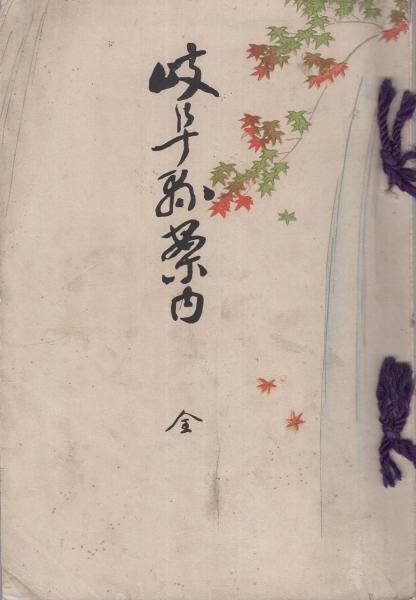 岐阜縣案内
全